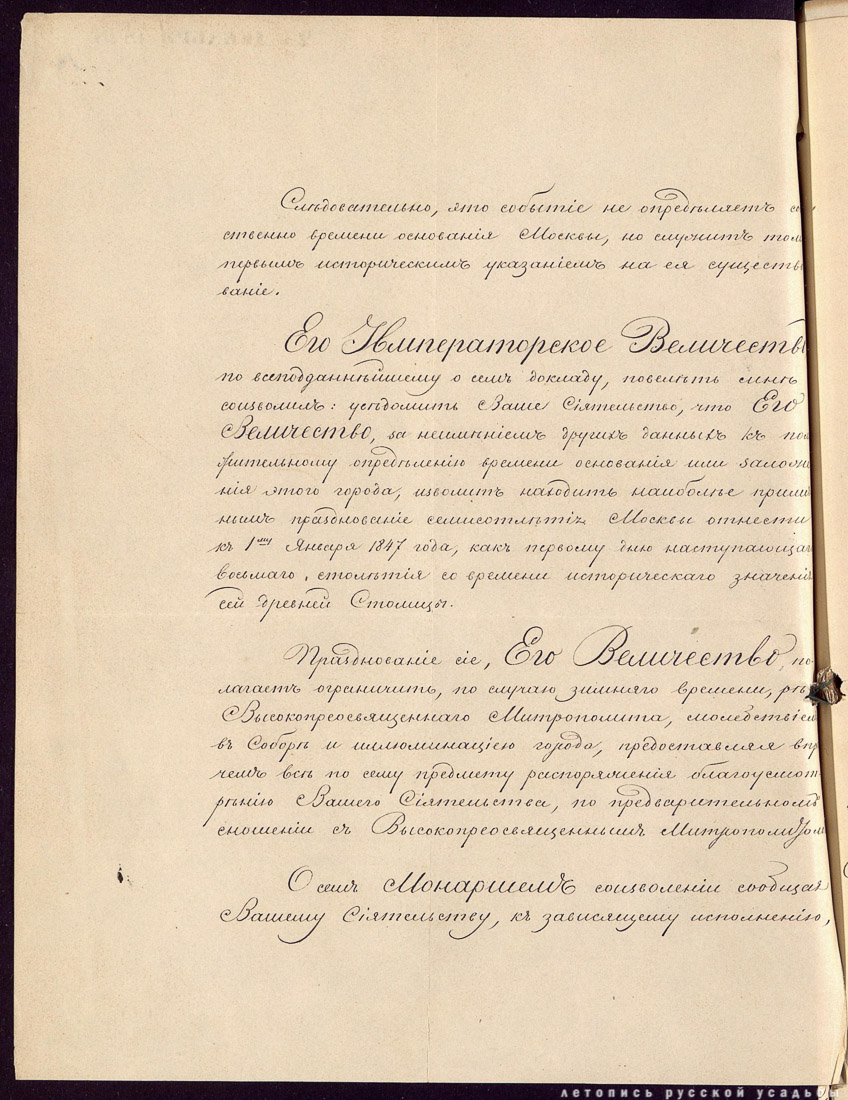 Слѣдовательно, это событіе не опредѣляетъ со
ственно времени основанія Москвы, но служитъ толь
первымъ историческимъ указаніемъ на ея существо
ваніе.
Его Императорское Величество
по всеподданнѣйшему о семъ докладу, повелѣть мнѣ
соизволилъ: увѣдомить Ваше Сіятельство, что Его
Величество, за неимѣніемъ другихъ данныхъ къ поло
жительному опредѣленію времени основанія или заложе
нія этого города, изволитъ находить наиболѣе прилич
нымъ празднованіе семисотлѣтія Москвы отнести
къ 1му Января 1847 года, какъ первому дню наступающаго
восьмаго столѣтія со времени историческаго значенія
сей древней Столицы.
Празднованіе сіе, Его Величество, по
лагаетъ ограничить, по случаю зимняго времени,
Высокопреосвященнаго Митрополита, молебствіем
въ Соборѣ и иллюминаціею города, предоставляя впро
чемъ всѣ по сему предмету распоряженія благоусмот
рѣнію Вашего Сіятельства, по предварительномъ
сношеніи съ Высокопреосвященнымъ Митрополитом
О семъ Монаршемъ соизволеніи сообщая
Вашему Сіятельству, къ зависящему исполненію,
летопись русской усадьбы